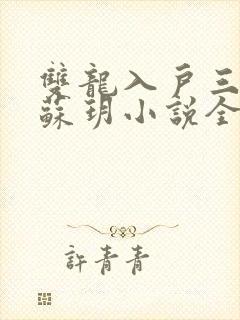 雙龍入戶三
蘇玥小說全
許青青